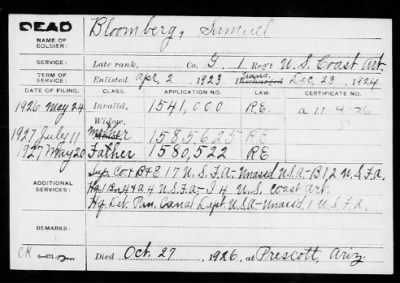 DEAD
NAME OF SOLDIER: Bloomberg, Samuel
SERVICE: Late rank, Co. G, 1 Reg't U.S. Coast Art.
TERM OF SERVICE: Enlisted Apr. 2, 1923 Trans. Discharged Dec. 23, 1924
DATE OF FILING. CLASS. APPLICATION NO. LAW. CERTIFICATE NO.
1926 May 24 Invalid, 1541,000 R.E. a 11-4-26
Widow,
1927 July 11 Mother 1585,625 R.E.
1927 May 20 Father 1580,522 R.E.
ADDITIONAL SERVICES: Sup. Co. & B & E. 17 U.S.F.A.- Unassd U.S.A.- B 12 U.S.F.A.
Hq. Bn 4 & A 4 U.S.F.A.- I 4 U.S. Coast Art.
Hq. Det. Pan. Canal Dept. U.S.A.- Unassd 1 U.S.F.A.
REMARKS:
Died Oct. 27, 1926, at Prescott, Ariz.